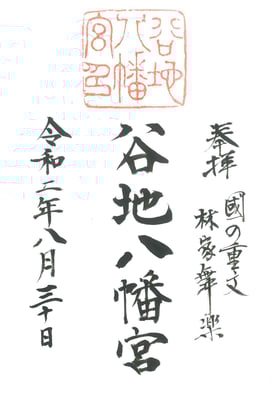 奉拝
國の重文
林家舞楽
谷地八幡宮
谷地八幡宮印
令和二年八月三十日